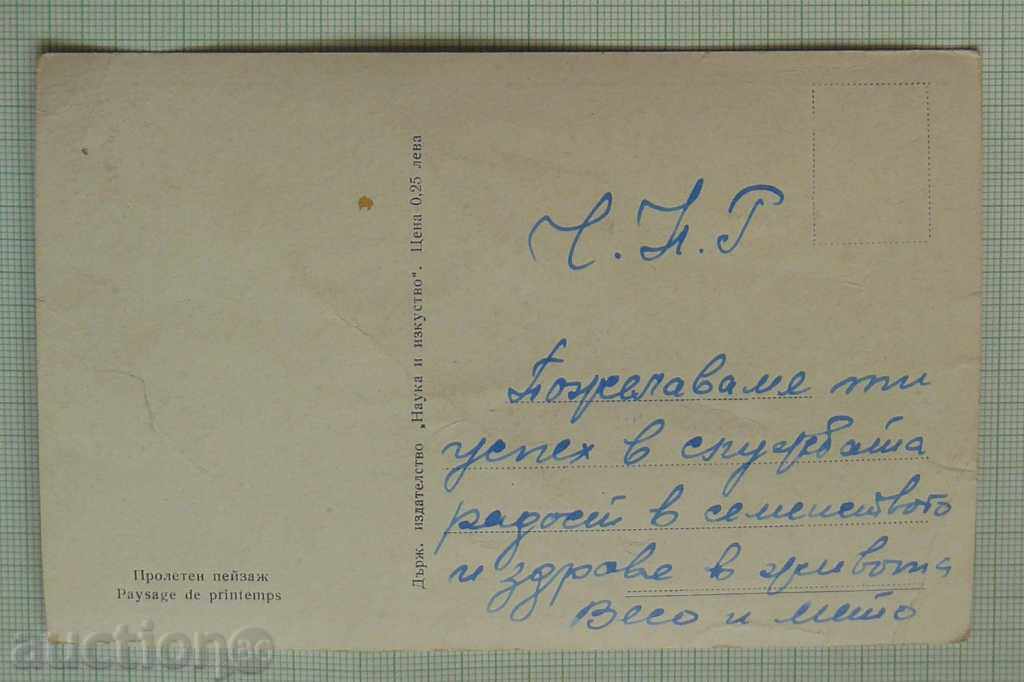 Пролетен пейзаж
Paysage de printemps
Държ. издателство „Наука и изкуство“. Цена 0,25 лева
Ч.Н.Г
Пожелаваме ти
успех в службата
радост в семейството
и здраве в живота
Весо и Мито
auction